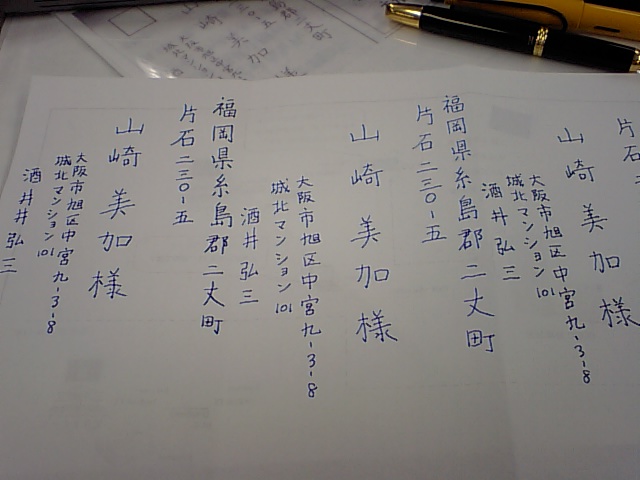 片石
山崎美加様
大阪市旭区中宮九-3-8
城北マンション101
酒井弘三
福岡県糸島郡二丈町
片石二三〇-五
山崎美加様
大阪市旭区中宮九-3-8
城北マンション101
酒井弘三
福岡県糸島郡二丈町
片石二三〇-五
山崎美加様
大阪市旭区中宮九-3-8
城北マンション101
酒井弘三